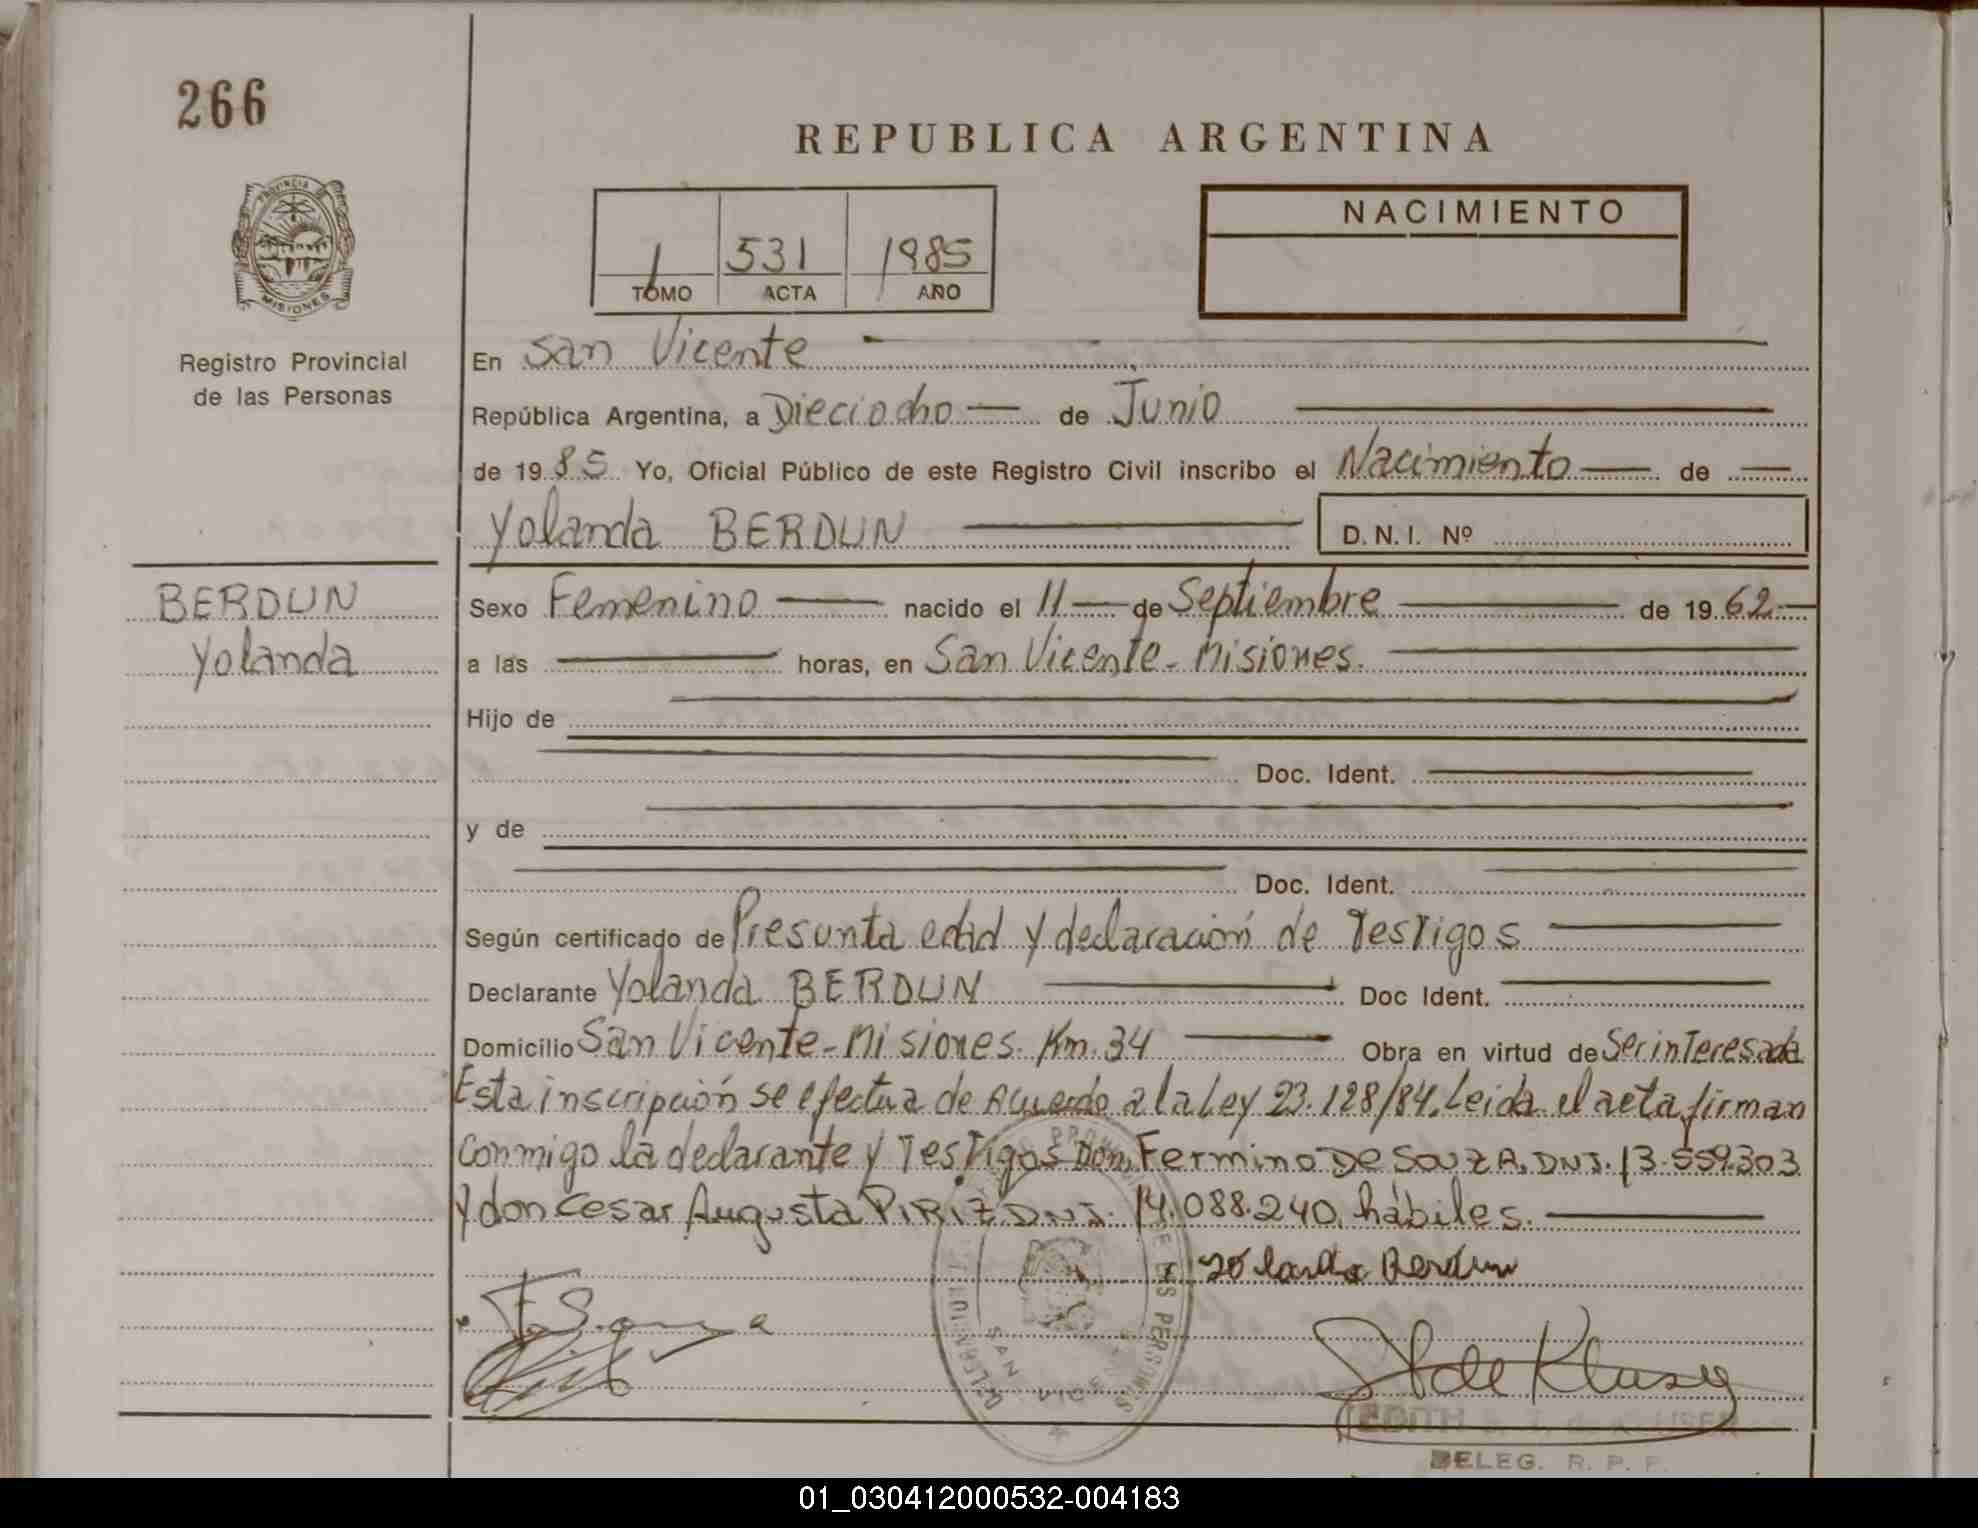 266
PROVINCIA DE
MISIONES
Registro Provincial
de las Personas
BERDUN
Yolanda
REPUBLICA ARGENTINA
1 531 1985
TOMO ACTA AÑO
NACIMIENTO
En San Vicente
República Argentina, a Dieciocho de Junio
de 1985 Yo, Oficial Público de este Registro Civil inscribo el Nacimiento de
Yolanda BERDUN D.N.I. Nº
Sexo Femenino nacido el 11 de Septiembre de 1962.
a las horas, en San Vicente - Misiones.
Hijo de
Doc. Ident.
y de
Doc. Ident.
Según certificado de Presunta edad y declaración de Testigos
Declarante Yolanda BERDUN Doc Ident.
Domicilio San Vicente - Misiones. Km. 34 Obra en virtud de Ser interesada
Esta inscripción se efectua de Acuerdo a la Ley 23.128/84. Leida el acta, firman
conmigo la declarante y Testigos Don, Fermino DE SOUZA, DNI. 13.559.303
y don Cesar Augusta PIRIZ DNI. 14.088.240, hábiles.
Yolanda Berdun
SAN VICENTE
DELEG. R. P. P.
01_030412000532-004183